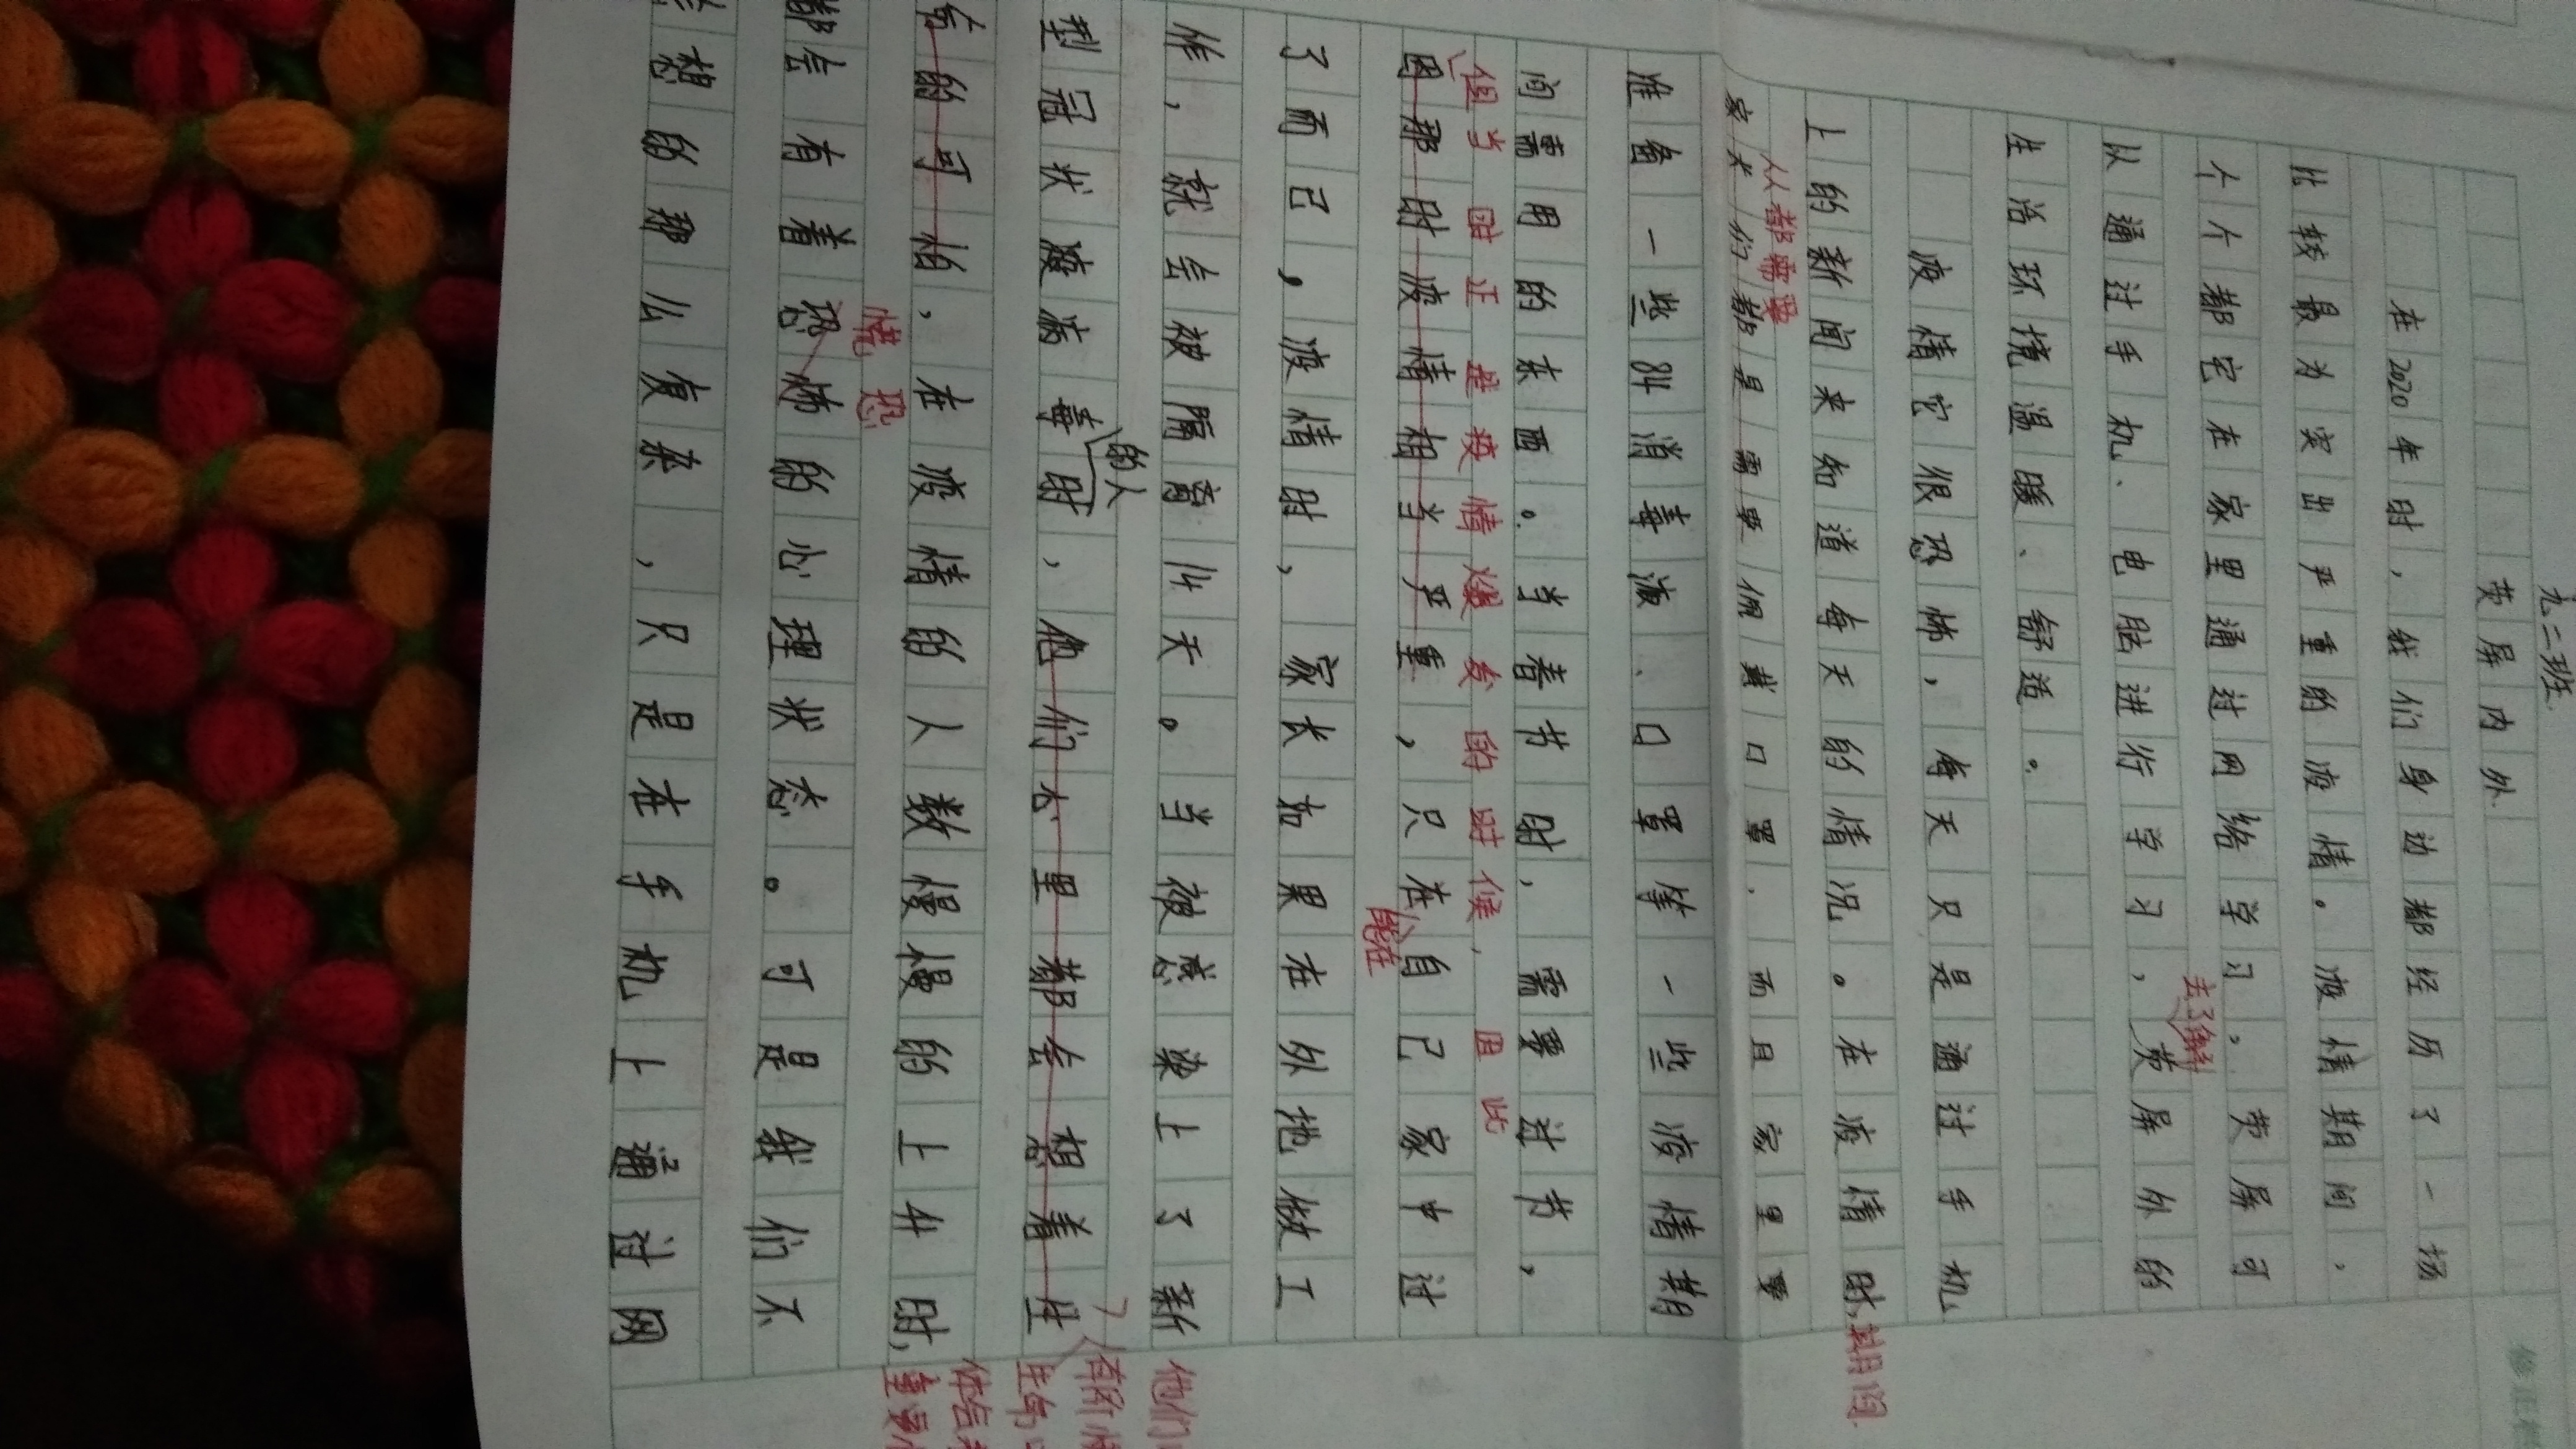 九二班
荧屏内外
在2020年时，我们身边都经历了一场
比较最为突出严重的疫情。疫情期间，
个个都宅在家里通过网络学习。荧屏可
去了解
从通过手机、电脑进行学习，荧屏外的
生活环境温暖、舒适。
疫情它很恐怖，每天只是通过手机
上的新闻来知道每天的情况。在疫情时，期间
人人都需要
家长们都是需要佩戴口罩，而且家里要
准备一些84消毒液、口罩等一些疫情期
间需用的东西。当春节时，需要过节，
但当时正是疫情爆发的时候，因此
因那时疫情相当严重，只在自己家中过
能在
了而已，疫情时，家长如果在外地做工
作，就会被隔离14天。当被感染上了新
的人
型冠状疫病毒时，他们心里都会想着生
命的可怕，在疫情的人数慢慢的上升时，
慌恐
都会有着恐怖的心理状态。可是我们不
会想的那么复杂，只是在手机上通过网
他们
修正